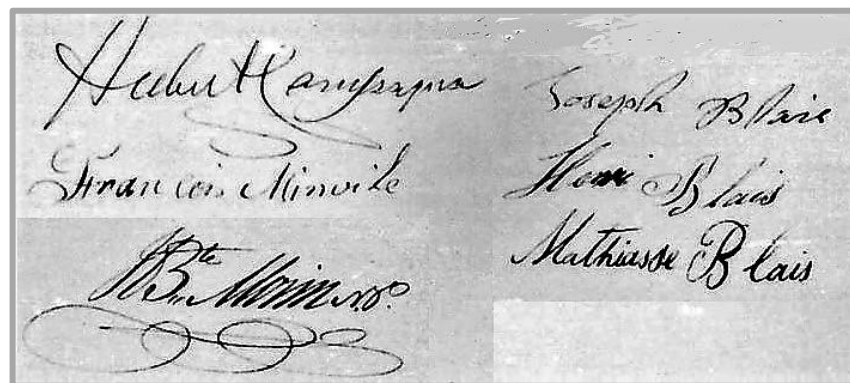 Hubert Campagna
François Minvile
JBte Morin N.P.
Joseph Blais
Henri Blais
Mathiasse Blais